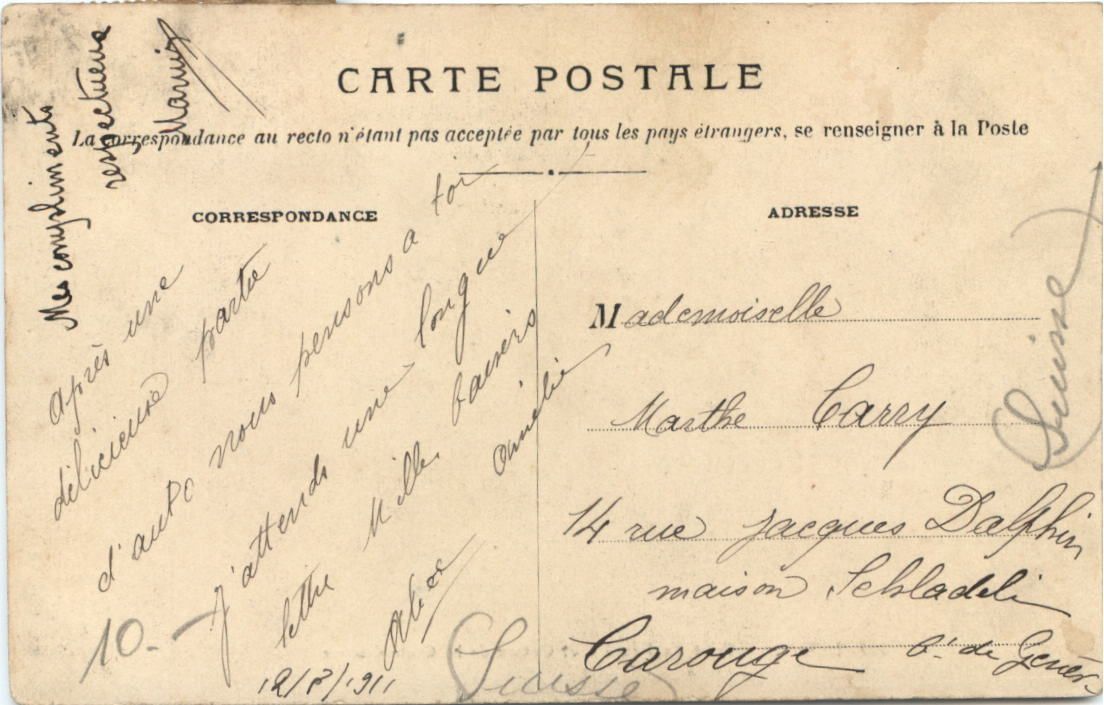 CARTE POSTALE
La correspondance au recto n'étant pas acceptée par tous les pays étrangers, se renseigner à la Poste
CORRESPONDANCE
Mes compliments
respectueux
après une
délicieuse partie
d'auto nous pensons a toi
J'attends une longue
lettre Mille baisers
Alice Amélie
12/8/1911
10.-
ADRESSE
Mademoiselle
Marthe Carry
14 rue Jacques Dalphin
maison Schladeli
Carouge Ct. de Genève
Suisse
Suisse